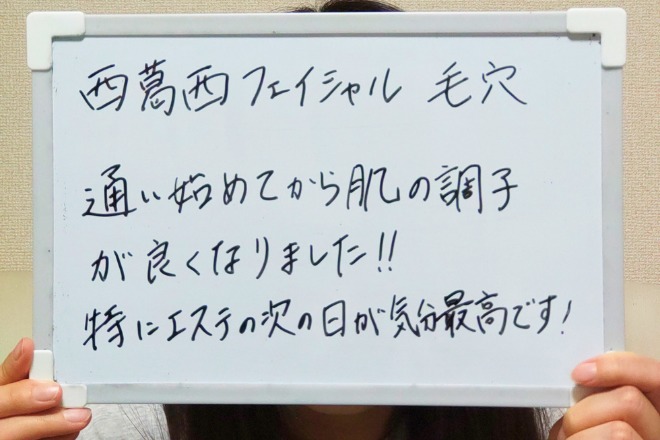 西葛西フェイシャル 毛穴
通い始めてから肌の調子
が良くなりました!!
特にエステの次の日が気分最高です!